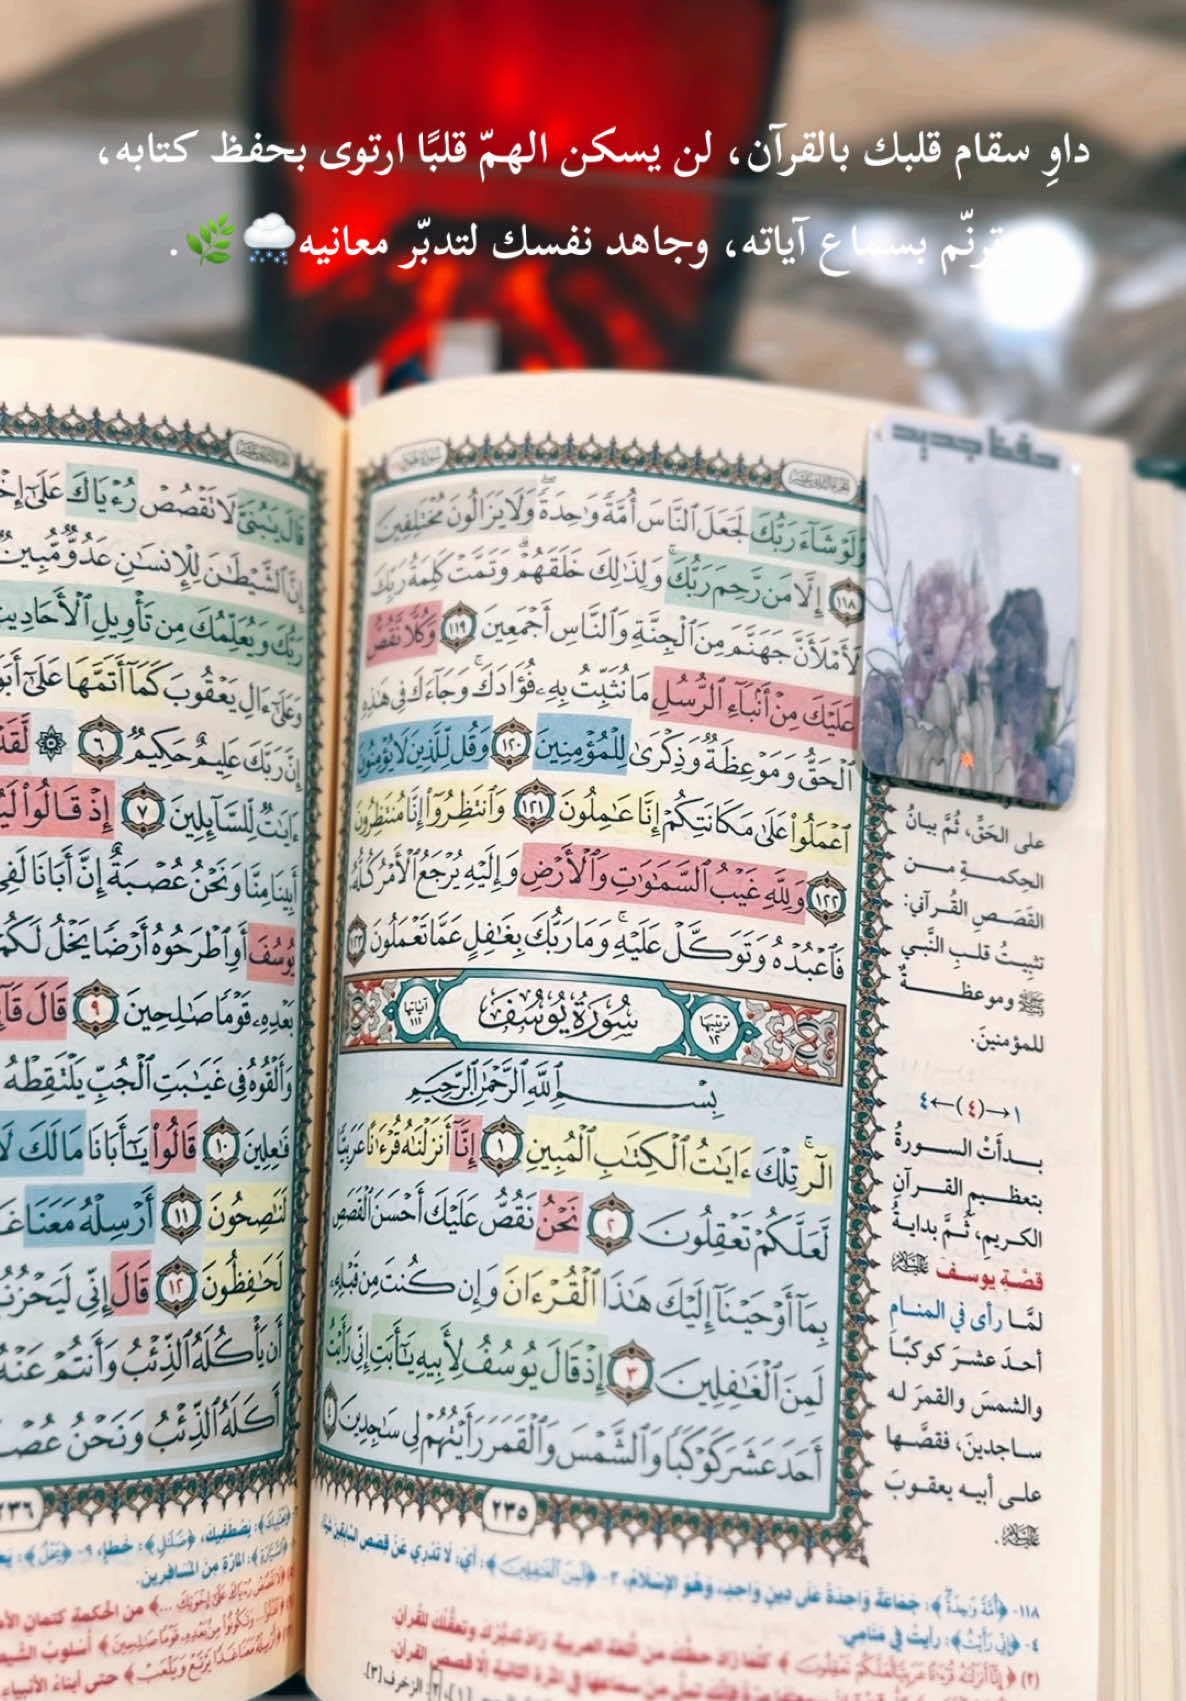 داوِ سقام قلبك بالقرآن، لن يسكن الهمّ قلبًا ارتوى بحفظ كتابه،
ترنّم بسماع آياته، وجاهد نفسك لتدبّر معانيه🌨️🌿.
حفظ جديد
وَلَوْ شَآءَ رَبُّكَ لَجَعَلَ ٱلنَّاسَ أُمَّةً وَٰحِدَةً وَلَا يَزَالُونَ مُخْتَلِفِينَ
١١٨ إِلَّا مَن رَّحِمَ رَبُّكَ وَلِذَٰلِكَ خَلَقَهُمْ وَتَمَّتْ كَلِمَةُ رَبِّكَ
لَأَمْلَأَنَّ جَهَنَّمَ مِنَ ٱلْجِنَّةِ وَٱلنَّاسِ أَجْمَعِينَ ١١٩ وَكُلًّا نَّقُصُّ
عَلَيْكَ مِنْ أَنۢبَآءِ ٱلرُّسُلِ مَا نُثَبِّتُ بِهِۦ فُؤَادَكَ وَجَآءَكَ فِى هَٰذِهِ
ٱلْحَقُّ وَمَوْعِظَةٌ وَذِكْرَىٰ لِلْمُؤْمِنِينَ ١٢٠ وَقُل لِّلَّذِينَ لَا يُؤْمِنُونَ
ٱعْمَلُوا۟ عَلَىٰ مَكَانَتِكُمْ إِنَّا عَٰمِلُونَ ١٢١ وَٱنتَظِرُوٓا۟ إِنَّا مُنتَظِرُونَ
١٢٢ وَلِلَّهِ غَيْبُ ٱلسَّمَٰوَٰتِ وَٱلْأَرْضِ وَإِلَيْهِ يُرْجَعُ ٱلْأَمْرُ كُلُّهُۥ
فَٱعْبُدْهُ وَتَوَكَّلْ عَلَيْهِ وَمَا رَبُّكَ بِغَٰفِلٍ عَمَّا تَعْمَلُونَ ١٢٣
ترتيبها ١٢ سُورَةُ يُوسُفَ آياتها ١١١
بِسْمِ ٱللَّهِ ٱلرَّحْمَٰنِ ٱلرَّحِيمِ
الٓر تِلْكَ ءَايَٰتُ ٱلْكِتَٰبِ ٱلْمُبِينِ ١ إِنَّآ أَنزَلْنَٰهُ قُرْءَٰنًا عَرَبِيًّا
لَّعَلَّكُمْ تَعْقِلُونَ ٢ نَحْنُ نَقُصُّ عَلَيْكَ أَحْسَنَ ٱلْقَصَصِ
بِمَآ أَوْحَيْنَآ إِلَيْكَ هَٰذَا ٱلْقُرْءَانَ وَإِن كُنتَ مِن قَبْلِهِۦ
لَمِنَ ٱلْغَٰفِلِينَ ٣ إِذْ قَالَ يُوسُفُ لِأَبِيهِ يَٰٓأَبَتِ إِنِّى رَأَيْتُ
أَحَدَ عَشَرَ كَوْكَبًا وَٱلشَّمْسَ وَٱلْقَمَرَ رَأَيْتُهُمْ لِى سَٰجِدِينَ ٤
٢٣٥
على الحَقِّ، ثُمَّ بيانُ
الحِكمـــةِ مـــن
القَصَـصِ القُـرآني:
تثبِيتُ قلـبِ النَّبـي
ﷺ وموعظـــةٌ
للمؤمنينَ.
١→(٤)←٤
بـدأَتْ السـورةُ
بتعظـيمِ القـرآنِ
الكريمِ، ثُـمَّ بدايـةُ
قصَّةِ يوسـفَ عليه السلام
لمَّـا رأى في المنـام
أحدَ عشرَ كوكبًا
والشمسَ والقمرَ له
سـاجدينَ، فقصَّـها
على أبيه يعقوبَ
عليه السلام.
١١٨- ﴿أُمَّةً وَٰحِدَةً﴾: جَمَاعَةً وَاحِدَةً عَلَى دِينٍ وَاحِدٍ، وَهُوَ الإِسْلَامُ، ٣- ﴿لَمِنَ ٱلْغَٰفِلِينَ﴾: أَيْ: لَا تَدْرِي عَنْ قِصَصِ السَّابِقِينَ
٤- ﴿إِنِّى رَأَيْتُ﴾: رَأَيْتُ فِي مَنَامِي.
قَالَ يَٰبُنَىَّ لَا تَقْصُصْ رُءْيَاكَ عَلَىٰٓ
إِنَّ ٱلشَّيْطَٰنَ لِلْإِنسَٰنِ عَدُوٌّ مُّبِينٌ
رَبُّكَ وَيُعَلِّمُكَ مِن تَأْوِيلِ ٱلْأَحَادِيثِ
وَعَلَىٰٓ ءَالِ يَعْقُوبَ كَمَآ أَتَمَّهَا عَلَىٰٓ
إِنَّ رَبَّكَ عَلِيمٌ حَكِيمٌ ٦ لَّقَدْ
ءَايَٰتٌ لِّلسَّآئِلِينَ ٧ إِذْ قَالُوا۟
أَبِينَا مِنَّا وَنَحْنُ عُصْبَةٌ إِنَّ أَبَانَا لَفِى
يُوسُفَ أَوِ ٱطْرَحُوهُ أَرْضًا يَخْلُ لَكُمْ
بَعْدِهِۦ قَوْمًا صَٰلِحِينَ ٩ قَالَ
وَأَلْقُوهُ فِى غَيَٰبَتِ ٱلْجُبِّ يَلْتَقِطْهُ
فَٰعِلِينَ ١٠ قَالُوا۟ يَٰٓأَبَانَا مَا لَكَ لَا
لَنَٰصِحُونَ ١١ أَرْسِلْهُ مَعَنَا
لَحَٰفِظُونَ ١٢ قَالَ إِنِّى لَيَحْزُنُنِىٓ
أَن يَأْكُلَهُ ٱلذِّئْبُ وَأَنتُمْ عَنْهُ
أَكَلَهُ ٱلذِّئْبُ وَنَحْنُ
٢٣٦